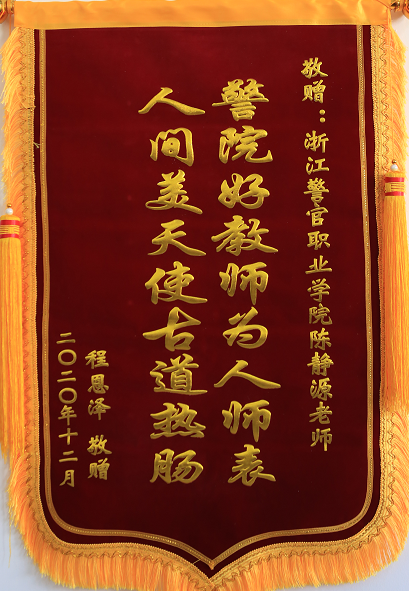 敬赠：浙江警官职业学院陈静源老师
警院好教师为人师表
人间美天使古道热肠
程恩泽 敬赠
二〇二〇年十二月